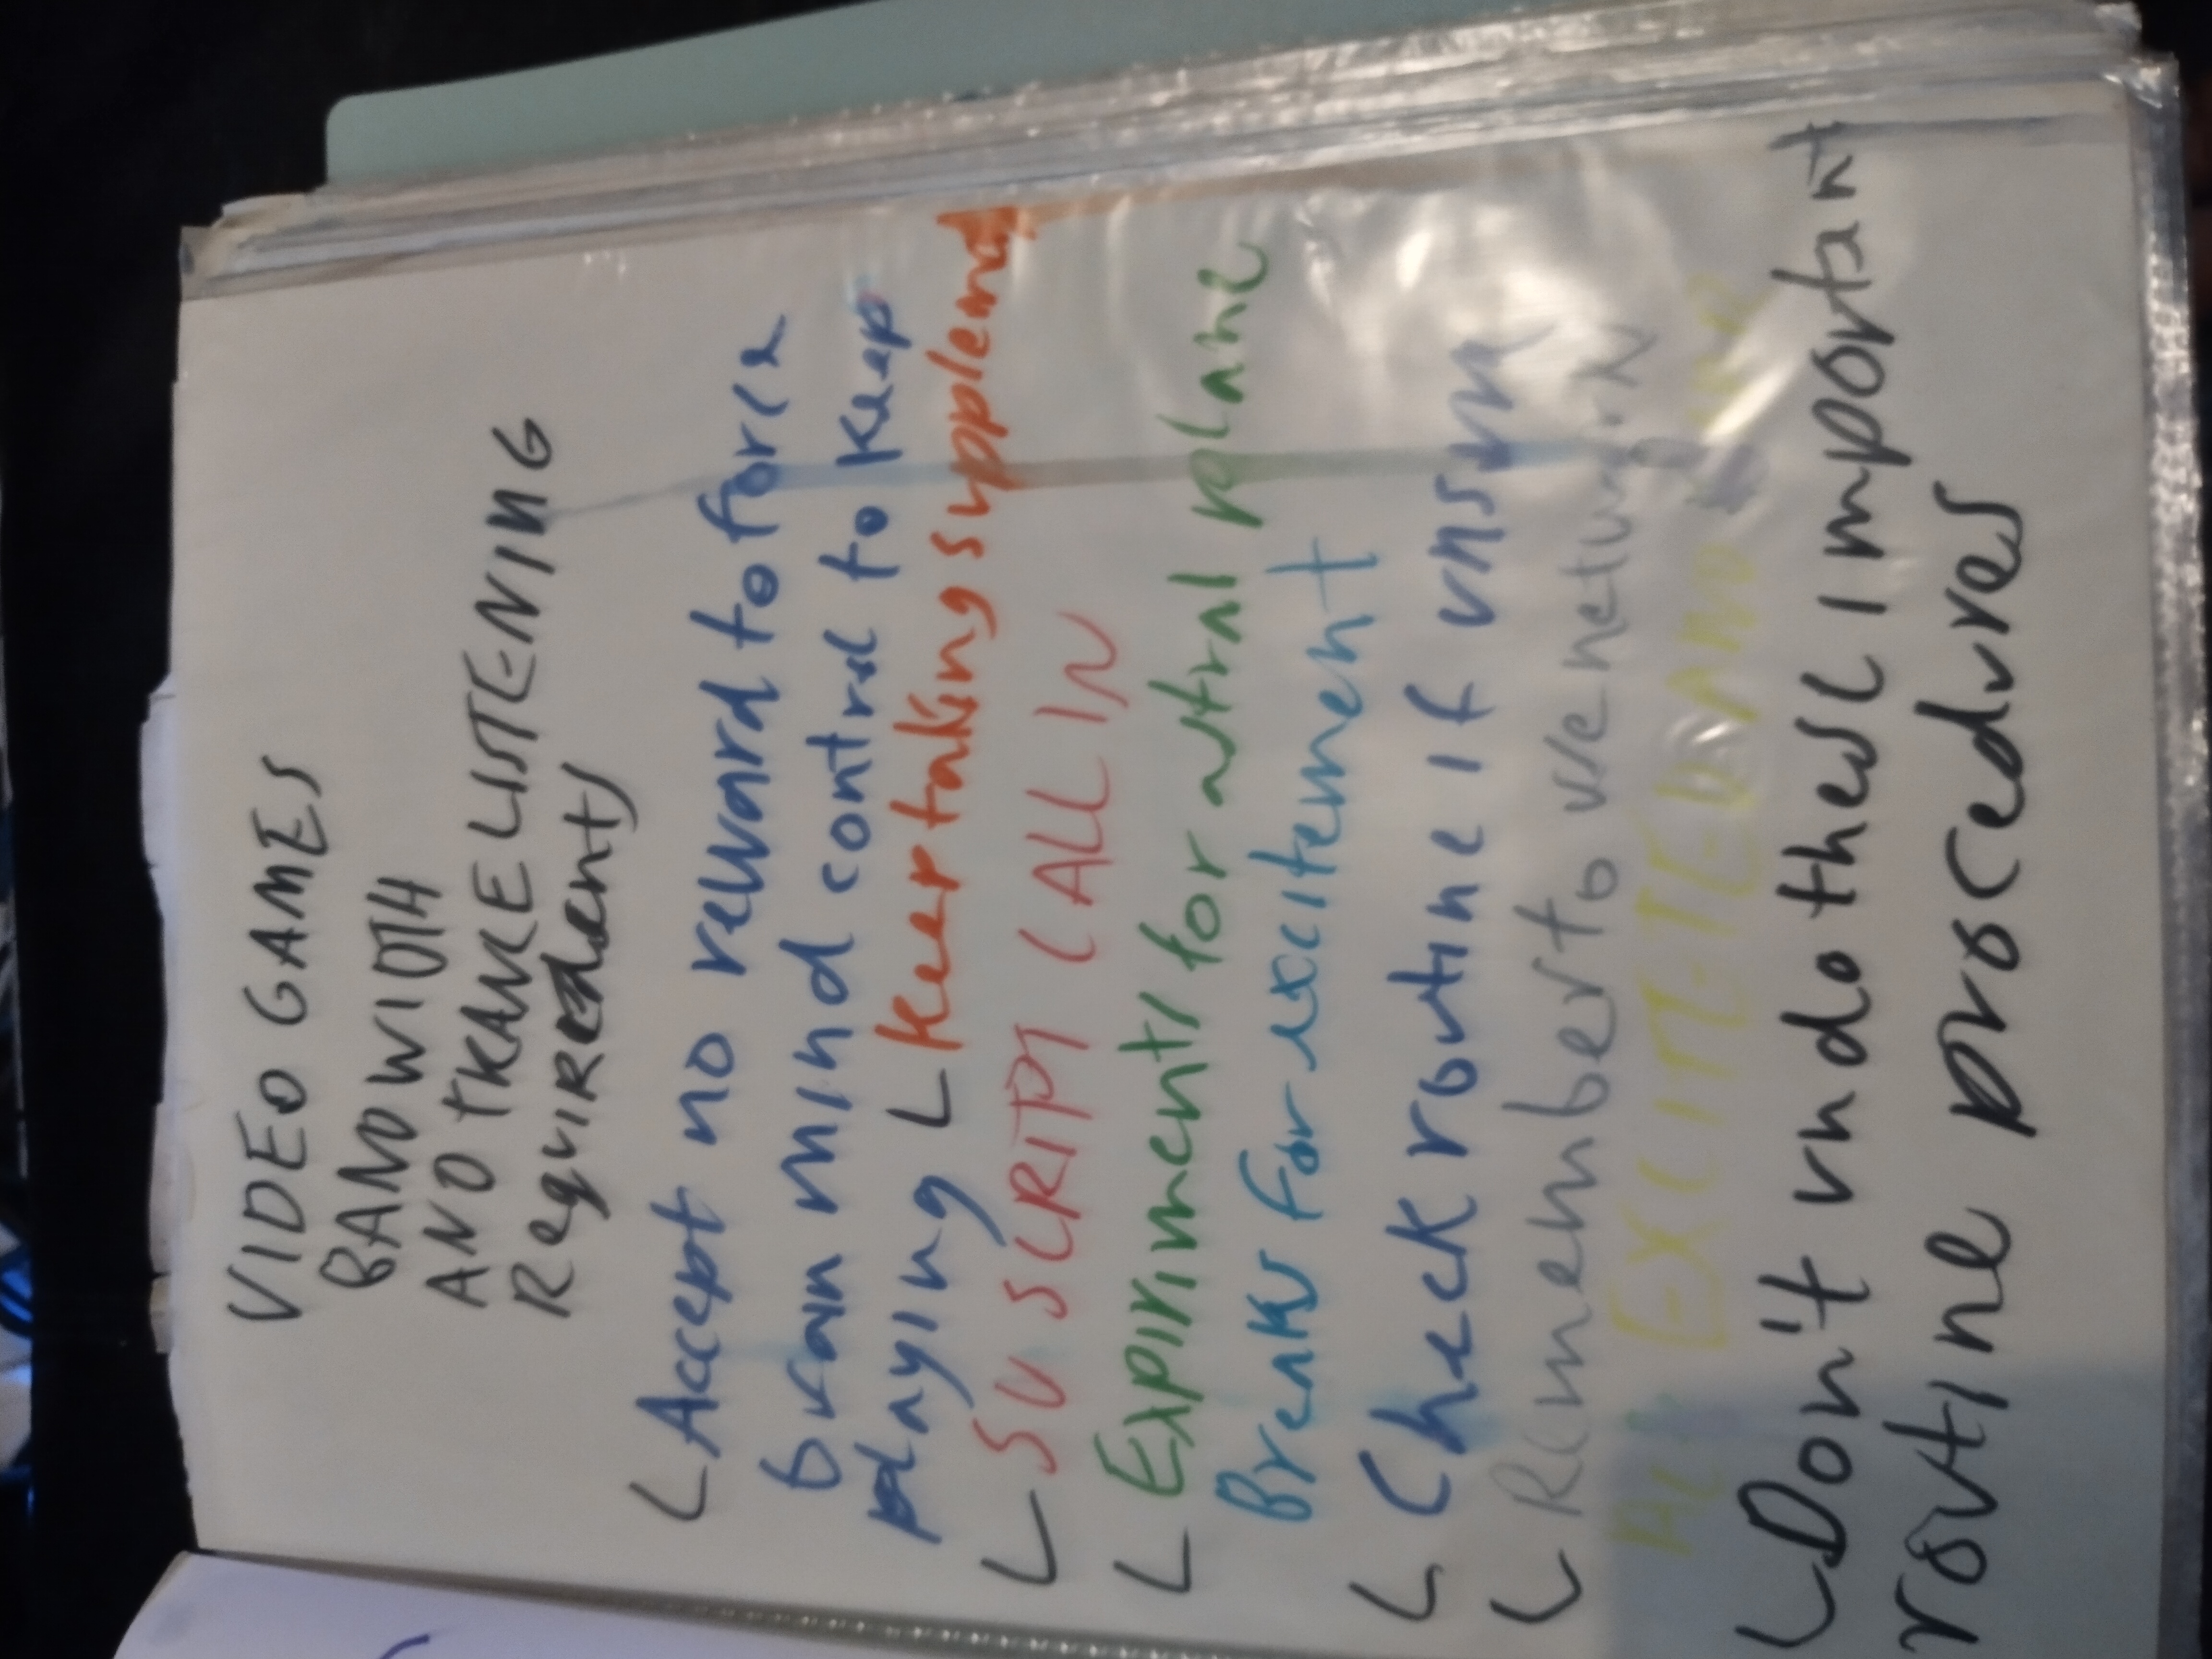 VIDEO GAMES
BANDWIDTH
AND TRANCE LISTENING
Requiredents
Accept no reward to force
brain mind control to keep
playing Keep taking supplement
SU SCRIPT CALL IN
Expiriments for astral plane
Breaks for excitement
Check routine if unsure
Remember to use
EXCITE
Don't undo these important
routine procedures